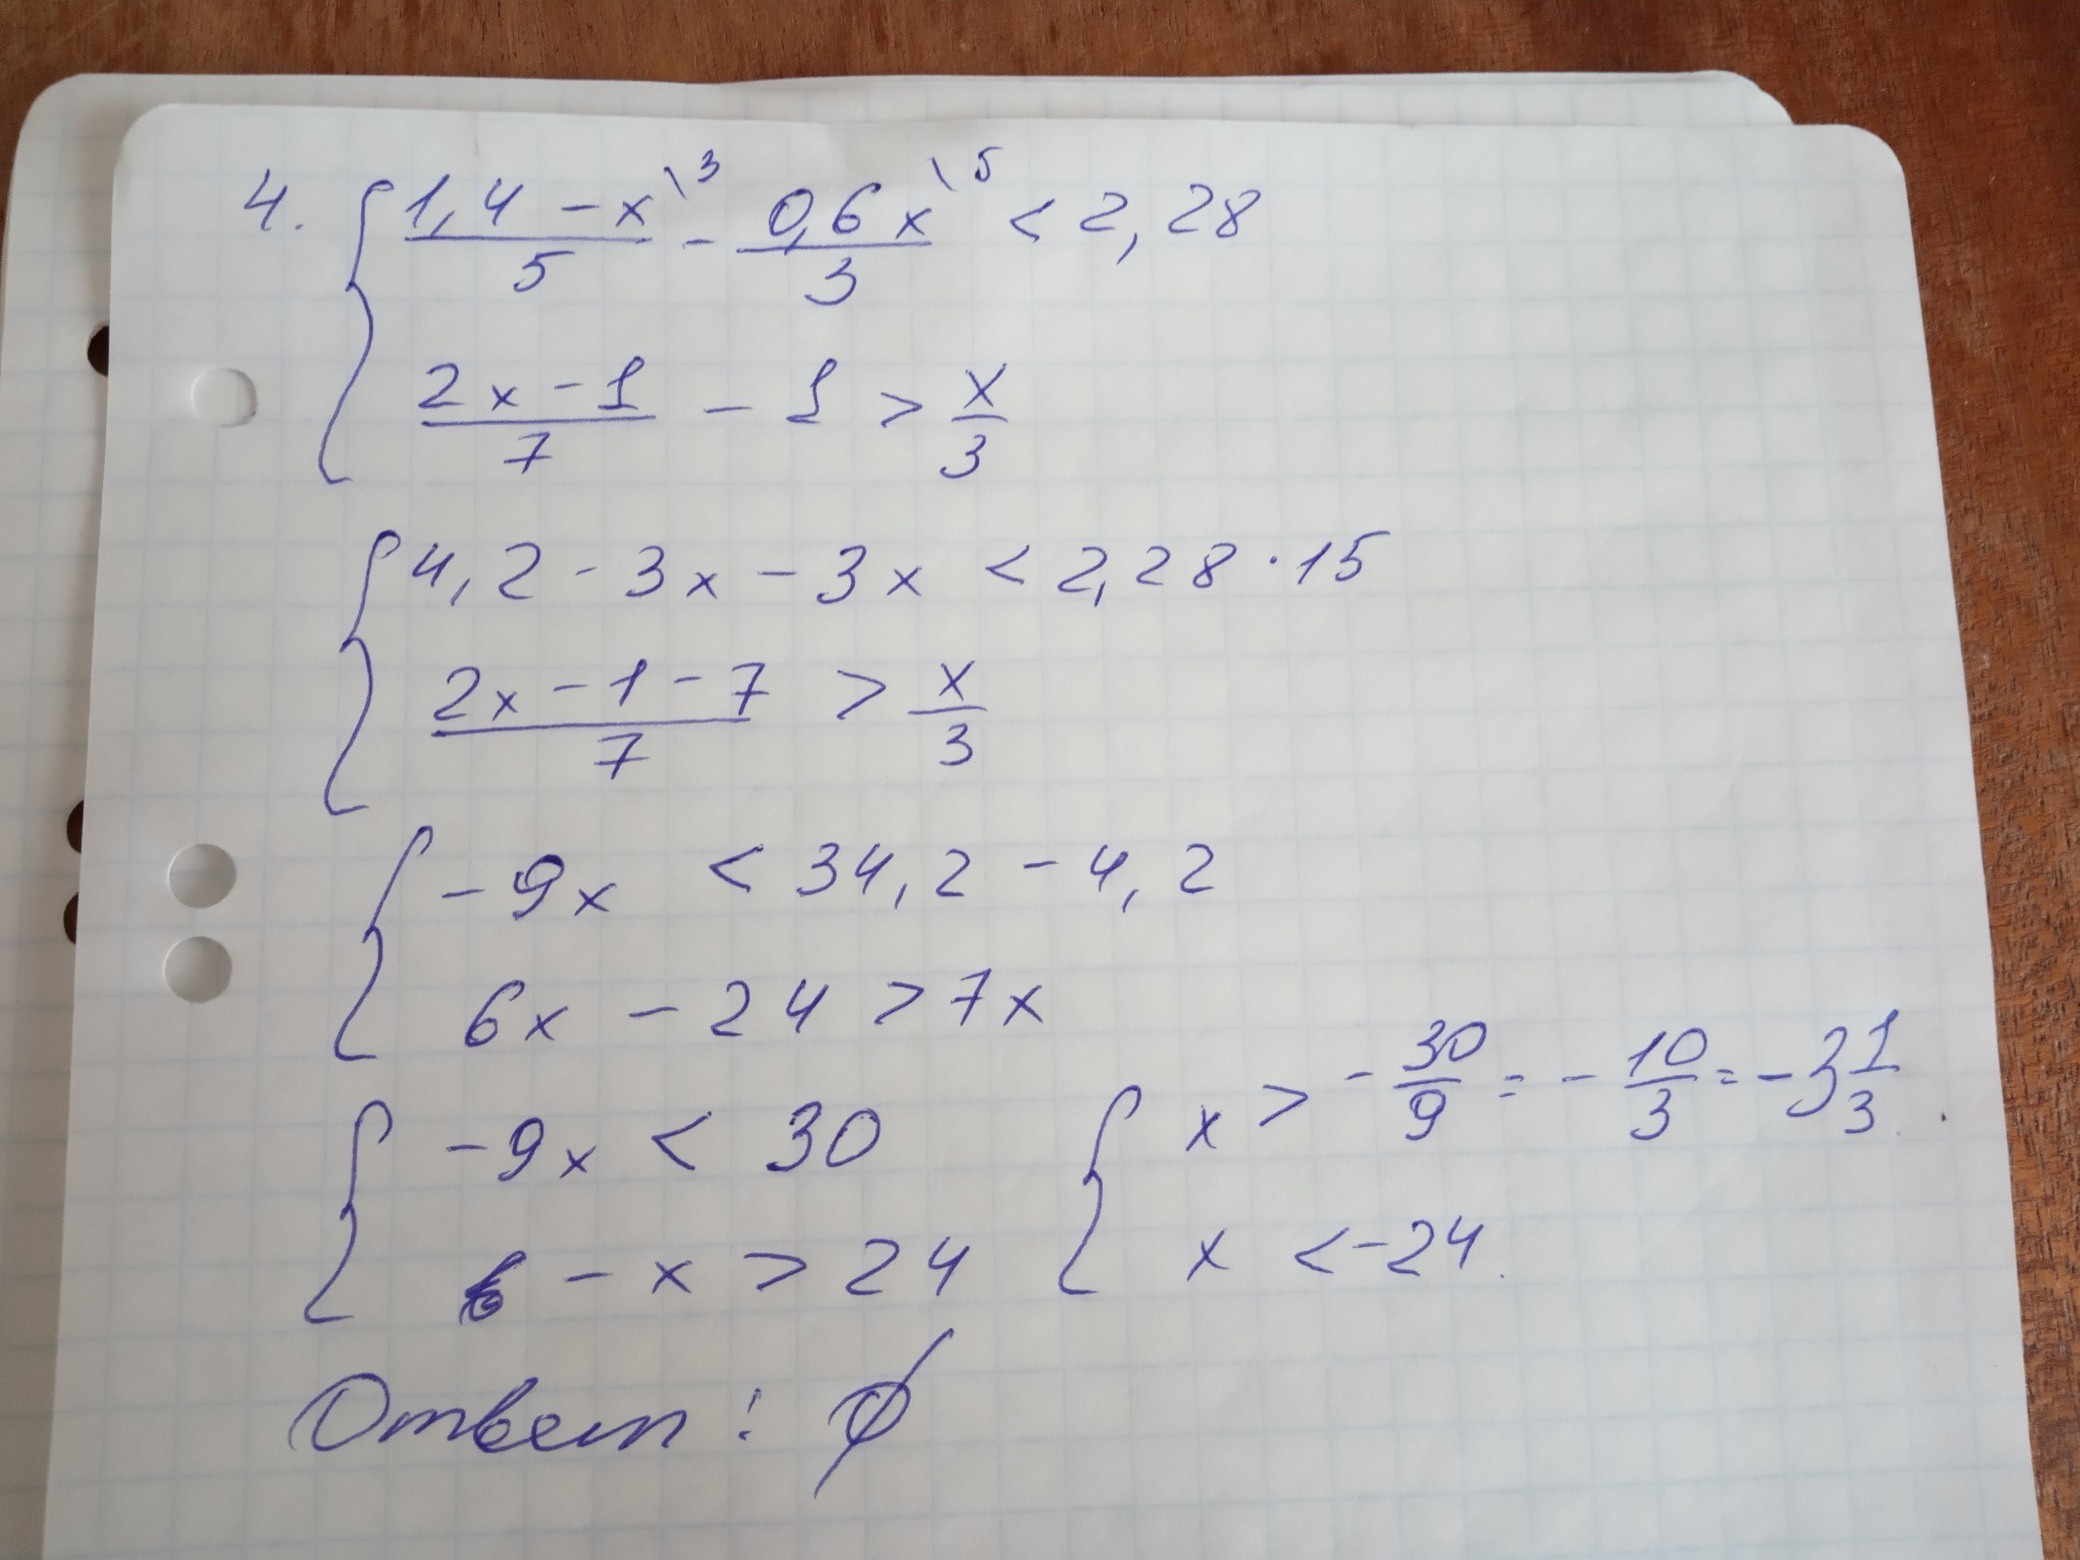 4. { (1,4 - x)\3 / 5 - 0,6x\5 / 3 < 2,28
(2x - 1) / 7 - 1 > x / 3
{ 4,2 - 3x - 3x < 2,28 · 15
(2x - 1 - 7) / 7 > x / 3
{ -9x < 34,2 - 4,2
6x - 24 > 7x
{ -9x < 30
- x > 24
{ x > - 30/9 = - 10/3 = -3 1/3
x < -24.
Ответ: ∅